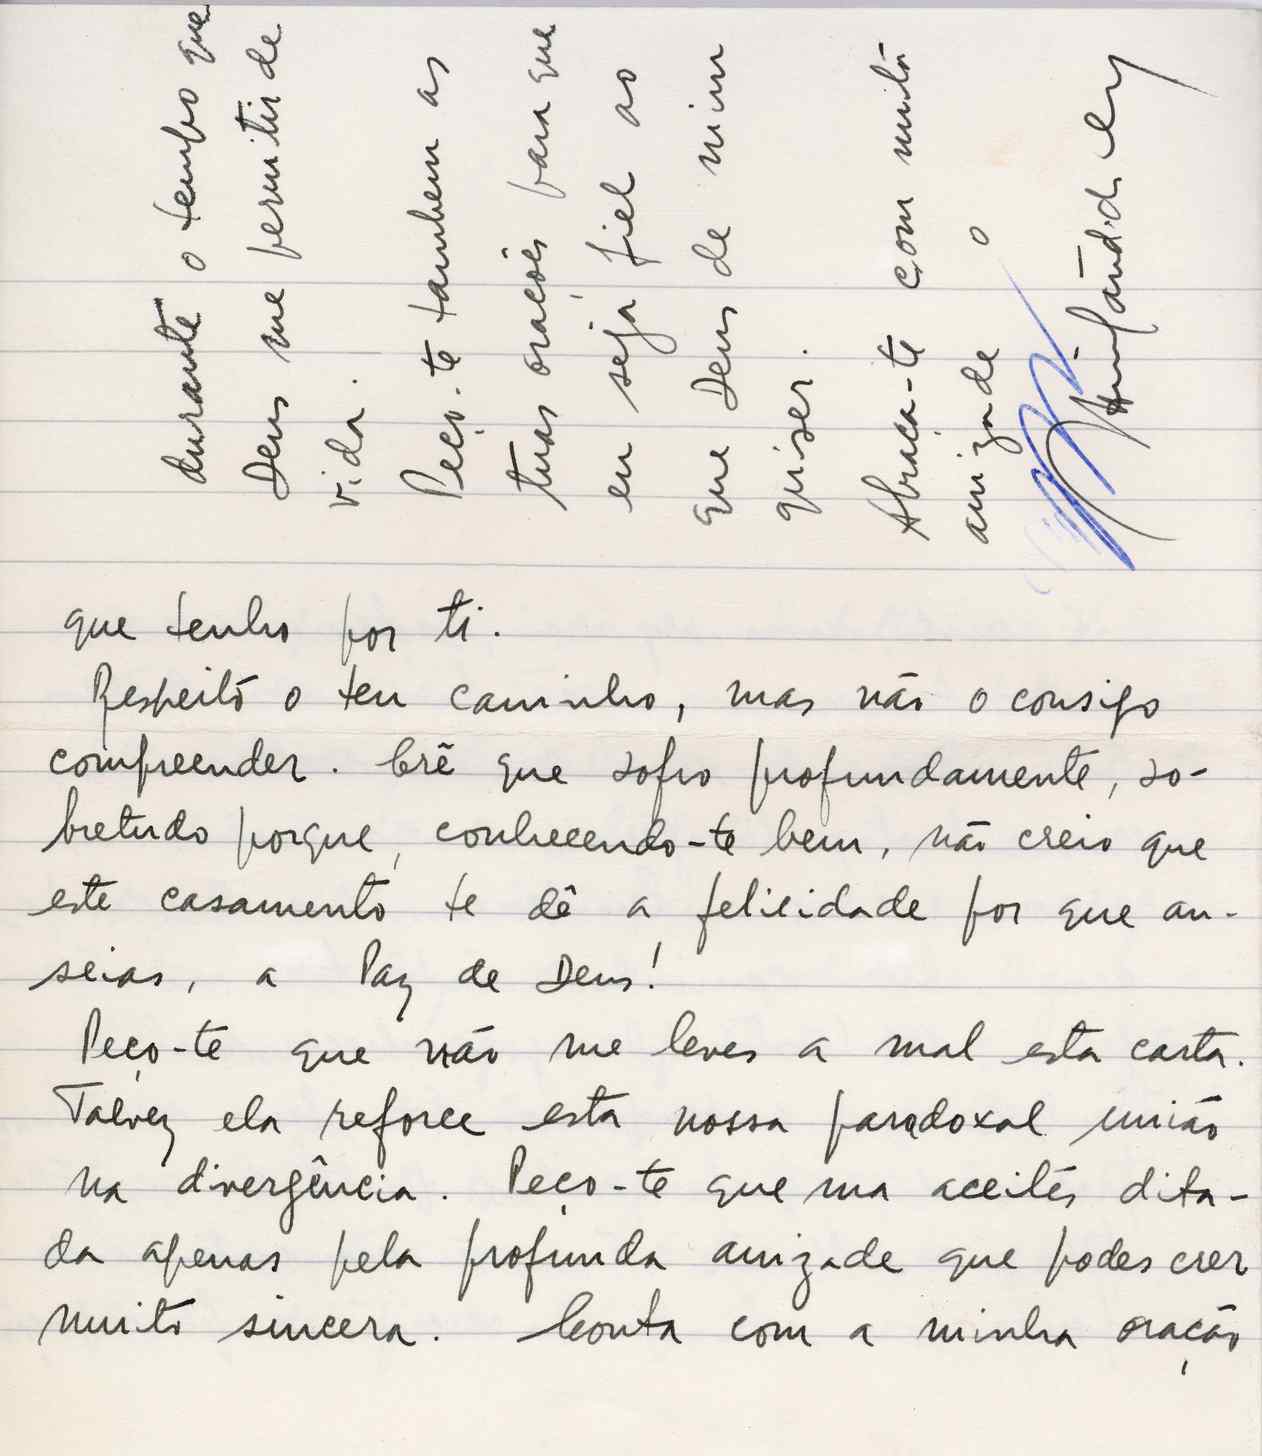 que tenho por ti.
Respeito o teu caminho, mas não o consigo
compreender. Crê que sofro profundamente, so-
bretudo porque, conhecendo-te bem, não creio que
este casamento te dê a felicidade por que an-
seias, a Paz de Deus!
Peço-te que não me leves a mal esta carta.
Talvez ela reforce esta nossa paradoxal união
na divergência. Peço-te que ma aceites dita-
da apenas pela profunda amizade que podes crer
muito sincera. Conta com a minha oração
durante o tempo que
Deus me permitir de
vida.
Peço-te tambem as
tuas orações para que
eu seja fiel ao
que Deus de mim
quiser.
Abraça-te com muita
amizade o